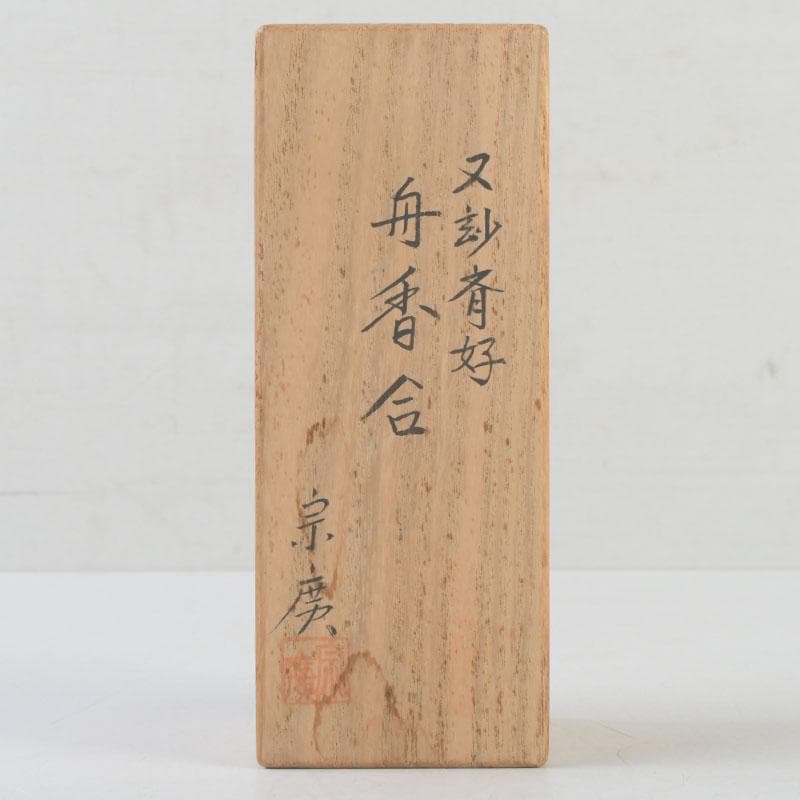 又玅斎好
舟香合
宗廣